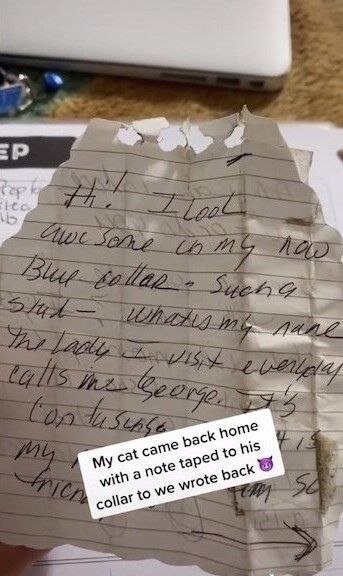 EP
Hi! I look
awesome in my new
Blue collar. Such a
stud - whats my name
The Lady I visit everyday
calls me George. It's
confusing
my is
My cat came back home
with a note taped to his
collar to we wrote back 😈